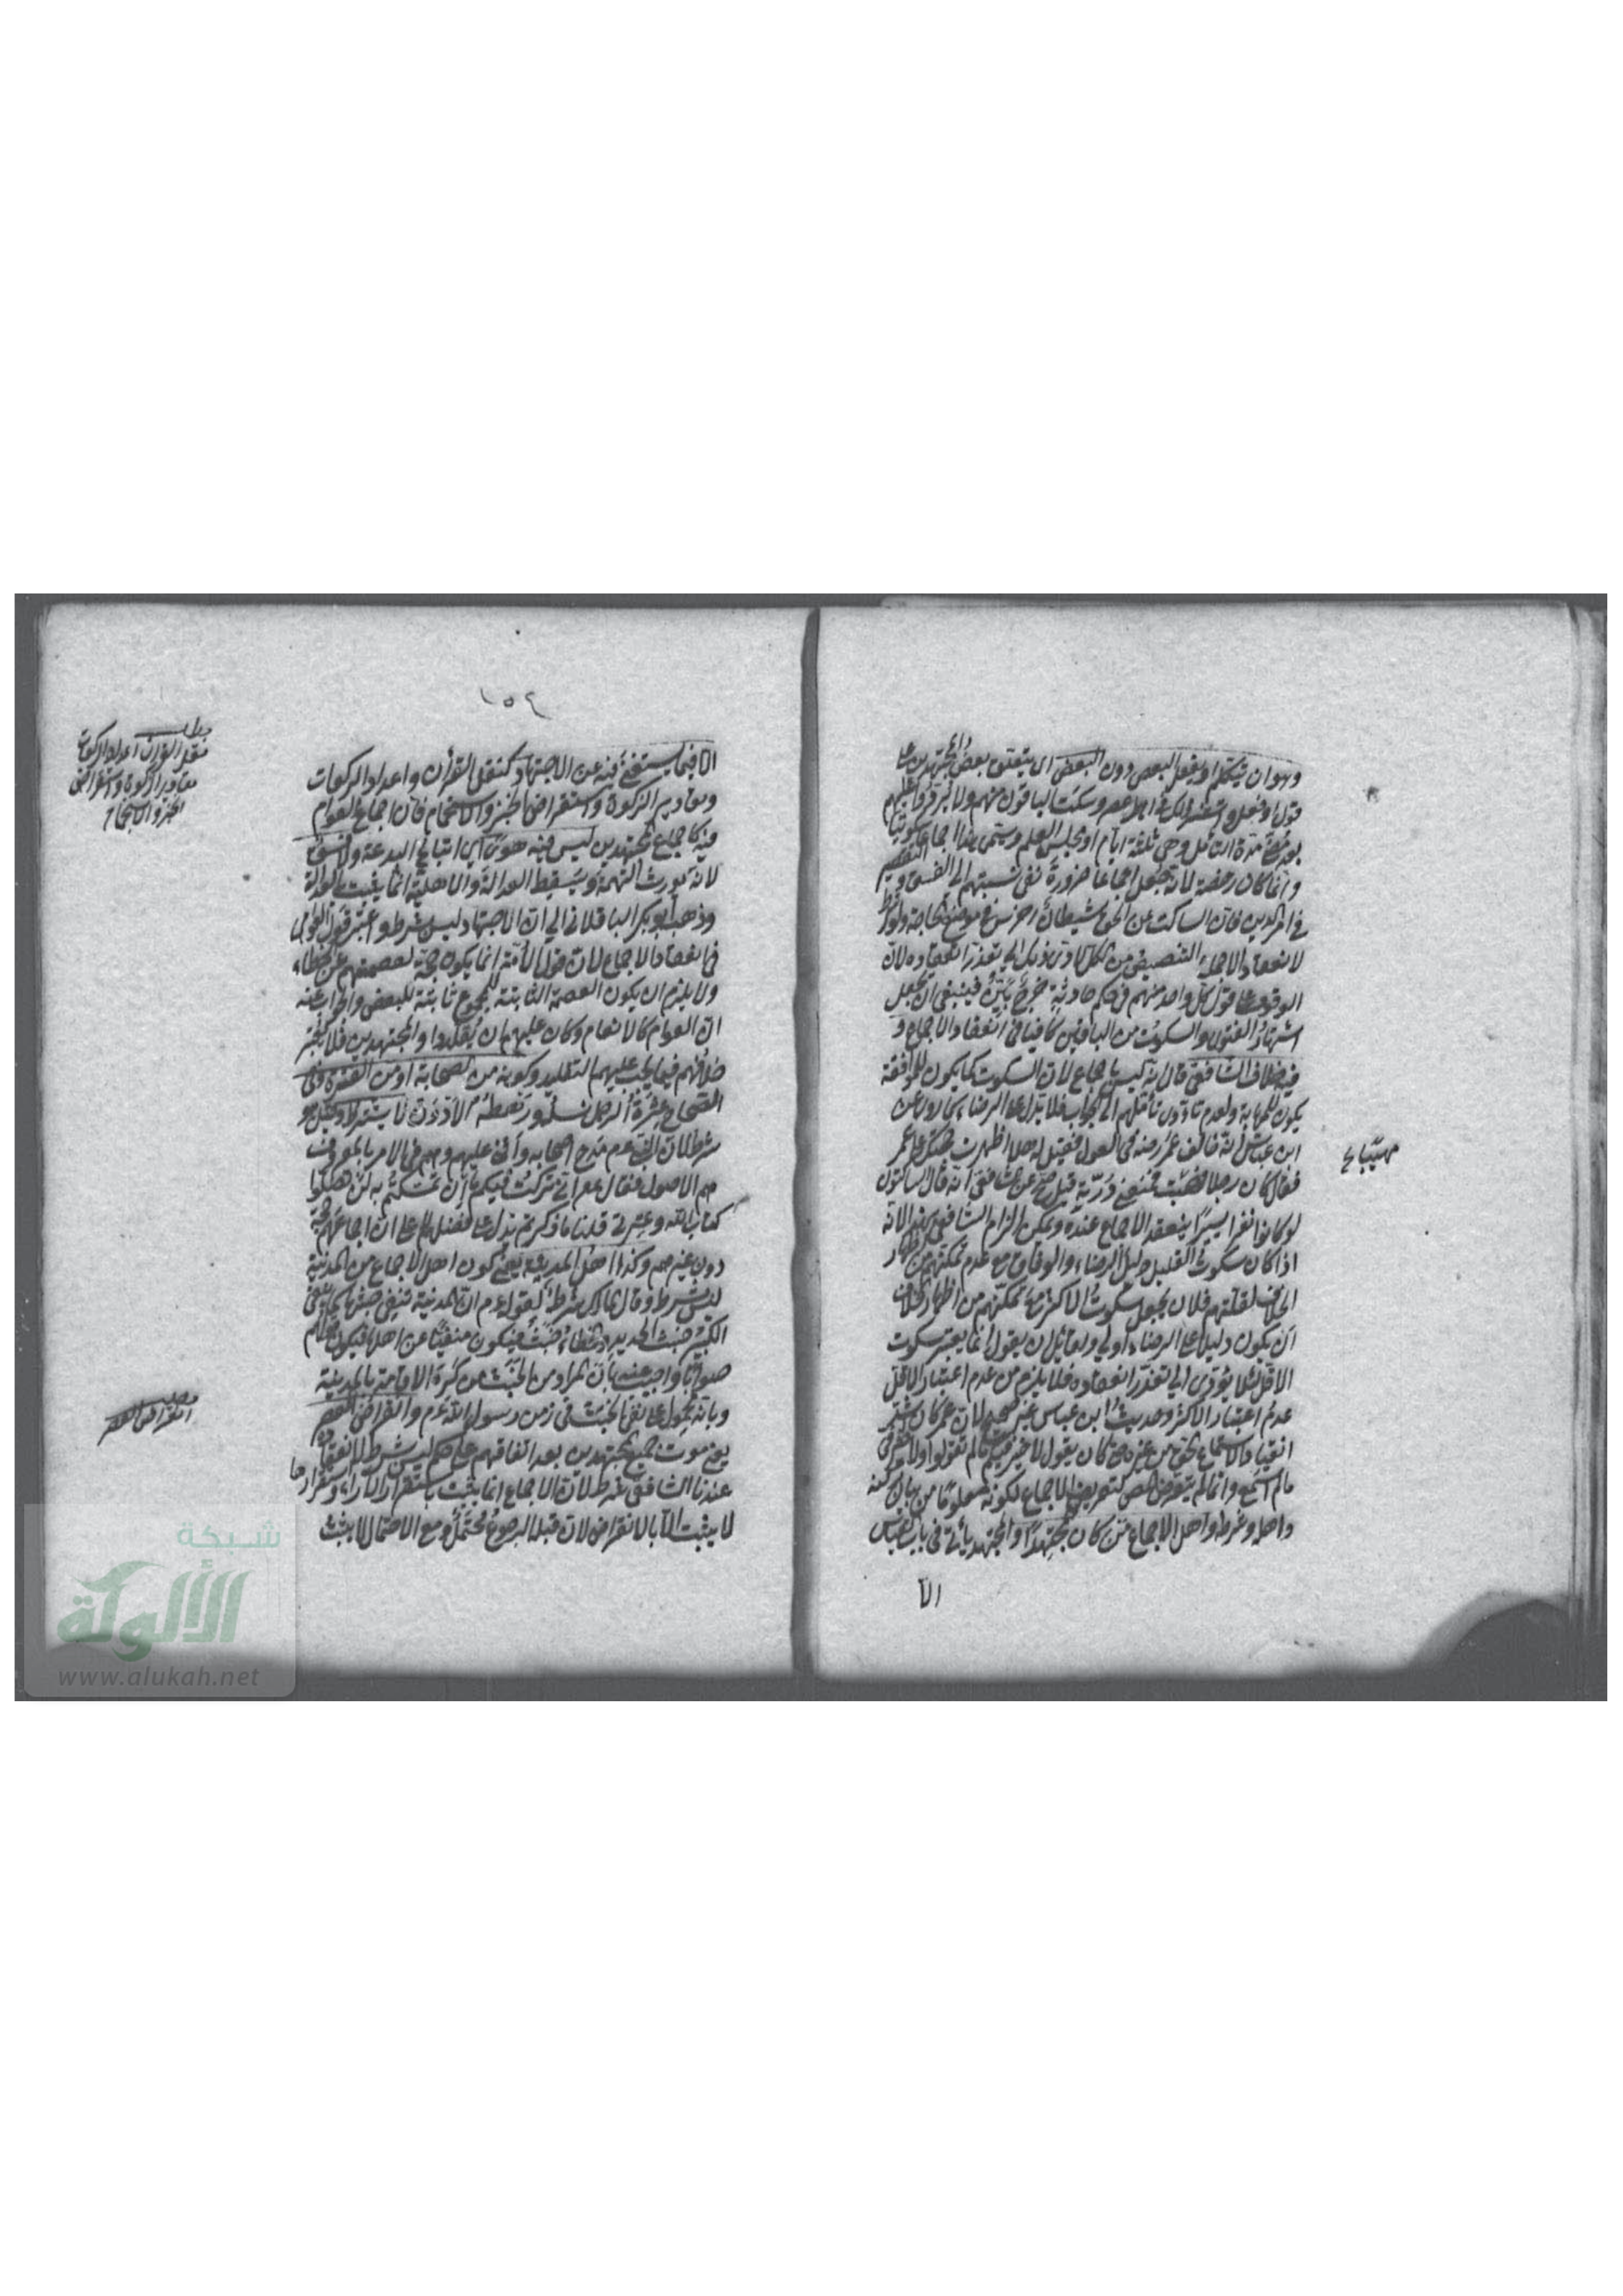 وهو ان يتكلم او يفعل البعض دون البعض اى يتفق بعض المجتهدين على
قول او فعل وانتشر ذلك فى اهل عصر وسكت الباقون منهم ولا يرد عليهم
بعد مضى مدة التأمل وهى ثلثة ايام او مجلس العلم ويسمى هذا اجماعا سكوتيا
وانما كان رخصة لانه جعل اجماعا ضرورة نفى نسبتهم الى الفسق والتقصير
فى امر الدين فان الساكت عن الحق شيطان اخرس فى موضع الحاجة ولو شرط
لانعقاد الاجماع التنصيص من الكل لادى ذلك الى تعذر انعقاده لان
الوقوف على قول كل واحد منهم فى حكم حادثة حرج بين فينبغى ان يجعل
اشتهار الفتوى والسكوت من الباقين كافيا فى انعقاد الاجماع و
فيه خلاف الشافعى قال انه ليس باجماع لان السكوت كما يكون للموافقة
يكون للمهابة ولعدم تأملهم الى الجواب فلا يدل على الرضاء كما روى عن
ابن عباس انه خالف عمر رضه فى العول فقيل له هلا اظهرت حجتك على عمر
فقال كان رجلا مهيبا فمنعنى درته قيل صح عن الشافعى انه قال الساكتون
لو كانوا نفرا يسيرا ينعقد الاجماع عنده ويمكن الزام الشافعى بهذا لانه
اذا كان سكوت القليل دليل الرضاء والوفاق مع عدم تمكنهم من اظهار
الخلاف لقلتهم فلان يجعل سكوت الاكثر مع تمكنهم من اظهار الخلاف
ان يكون دليلا على الرضاء اولى ولقائل ان يقول انما يعتبر سكوت
الاقل لئلا يؤدى الى تعذر انعقاده فلا يلزم من عدم اعتبار الاقل
عدم اعتبار الاكثر وحديث ابن عباس غير صحيح لان عمر كان اشد
انقيادا لاستماع الحق من غيره حتى كان يقول لا خير فيكم ما لم تقولوا ولا خير فى
ما لم اسمع وانما لم يتعرض المص لتعريف الاجماع لكونه معلوما من بيان ركنه
واهله وشرطه واهل الاجماع من كان مجتهدا والمجتهد يأتى فى باب القياس
الا
مهيبا صح
١٥٤
الا فيما يستغنى فيه عن الاجتهاد كنقل القرأن واعداد الركعات
ومقادير الزكوة واستقراض الخبز والاستحمام فان اجماع العوام
فيه كاجماع المجتهدين ليس فيه هوى اى اتباع البدعة ولا فسق
لانه يورث التهمة ويسقط العدالة والاهلية انما يثبت بالعدالة
وذهب ابو بكر الباقلانى الى ان الاجتهاد ليس بشرط واعتبر قول العوام
فى انعقاد الاجماع لان قول الأمة انما يكون حجة لعصمتهم عن الخطاء
ولا يلزم ان يكون العصمة الثابتة للمجموع ثابتة للبعض والجواب عنه
ان العوام كالانعام وكان عليهم ان يقلدوا المجتهدين فلا يعتبر
خلافهم فيما يجب عليهم التقليد وكونه من الصحابة او من العترة وفى
الصحاح عترة الرجل نسله ورهطه الادنون لا يشترط وقيل هو
شرط لان النبى عم مدح اصحابه واثنى عليهم وهم فى الامر بالمعروف
هم الاصول فقال عم انى تركت فيكم ما ان تمسكتم به لن تضلوا
كتاب الله وعترتى قلنا ما ذكرتم يدل على فضلهم لا على ان اجماعهم حجة
دون غيرهم وكذا اهل المدينة يعنى كون اهل الاجماع من المدينة
ليس بشرط وقال مالك شرط لقوله عم ان المدينة تنفى خبثها كما ينفى
الكير خبث الحديد والخطاء خبث فيكون منفيا عن اهلها فيكون قولهم
صوابا واجيب عنه بان المراد من الخبث من كره الاقامة بالمدينة
وبانه محمول على نفى الخبث فى زمن رسول الله عم وانقراض العصر
يعنى موت جميع المجتهدين بعد اتفاقهم على حكم ليس شرط لانعقاده
عندنا الشافعى شرط لان الاجماع انما يثبت باستقرار الآراء واستقرارها
لا يثبت الا بالانقراض لان قبله الرجوع محتمل ومع الاحتمال لا يثبت
مطلب
نقل القرأن اعداد الركعات
مقادير الزكوة واستقراض
الخبز والاستحمام
مطلب
انقراض العصر
شبكة
الألوكة
www.alukah.net